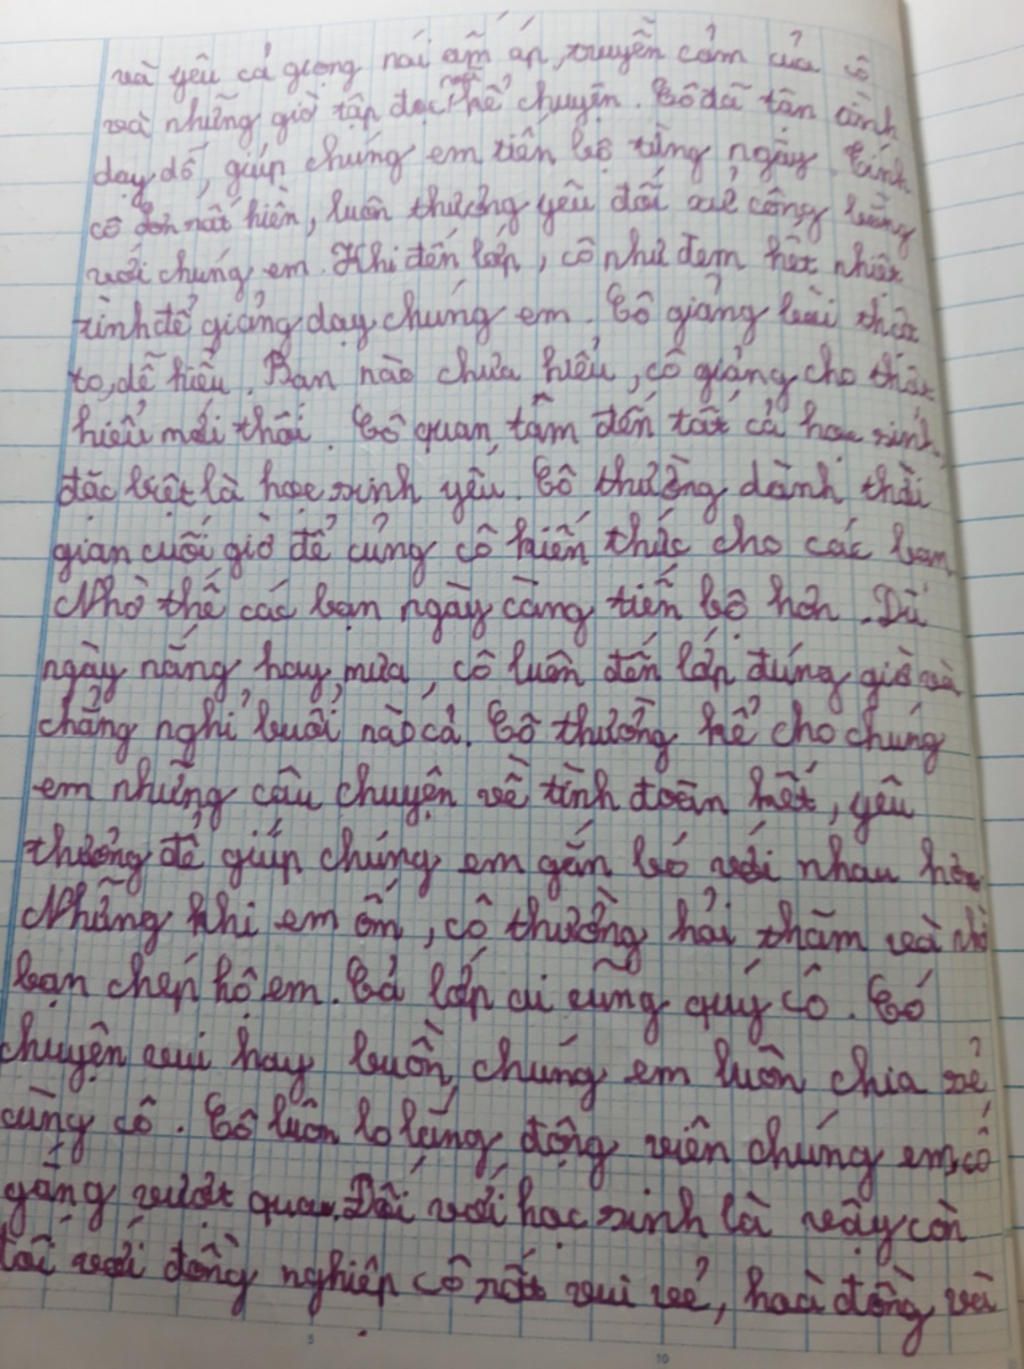 và yêu cả giọng nói ấm áp, truyền cảm của cô
và những giờ tập đọc kể chuyện. Cô đã tận tình
dạy dỗ, giúp chúng em tiến bộ từng ngày. Tính
cô đôn hiền, luôn thương yêu đối xử công bằng
với chúng em. Khi đến lớp, cô như đem hết nhiệt
tình để giảng dạy chúng em. Cô giảng bài thật
to, dễ hiểu. Bạn nào chưa hiểu, cô giảng cho thật
hiểu mới thôi. Cô quan tâm đến tất cả học sinh,
đặc biệt là học sinh yếu. Cô thường dành thời
gian cuối giờ để củng cô kiến thức cho các bạn.
Nhờ thế các bạn ngày càng tiến bộ hơn. Dù
ngày nắng hay mưa, cô luôn đến lớp đúng giờ và
chẳng nghỉ buổi nào cả. Cô thường kể cho chúng
em những câu chuyện về tình đoàn kết, yêu
thương để giúp chúng em gắn bó với nhau hơn.
Những khi em ốm, cô thường hỏi thăm và nhờ
bạn chép hộ em. Cả lớp ai cũng quý cô. Có
chuyện vui hay buồn, chúng em luôn chia sẻ
cùng cô. Cô luôn lo lắng động viên chúng em cố
gắng vượt qua. Đối với học sinh là vậy còn
đối với đồng nghiệp cô rất vui vẻ, hoà đồng và